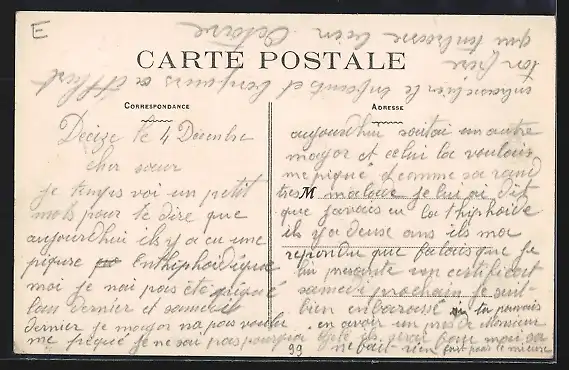 E
CARTE POSTALE
CORRESPONDANCE
ADRESSE
Decize le 4 Décembre
cher sœur
je tenvois voi un petit
mots pour te dire que
aujourdhui ils y a eu une
piqure enthiphoidique
moi je nai pais été piqué
lan dernier et samedi
dernier je mayor na pas voulu
me piqué je ne sai pas pourquoi
aujourdhui soutai un autre
mayor et celui la voulais
me piqué comme sa rend
tres M malade je lui ai dit
que javais eu la thiphoide
ils y a deuse ans ils ma
repondu que falais que je
lui un certificat
samedi prochain je suit
bien enbarassé si tu pouvais
en avoir un pres de Monsieur
ne fait rien fait pour le mieuse
99
ton frère
qui tembrasse bien Octave